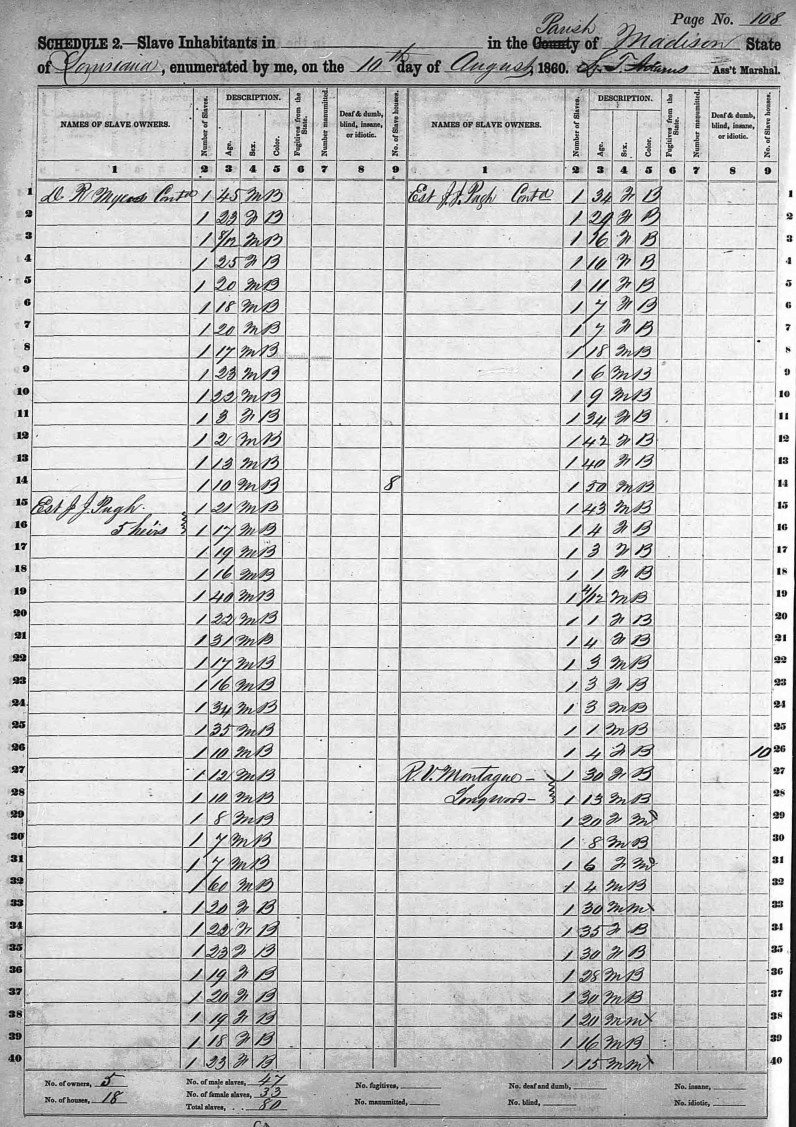 Page No. 108
SCHEDULE 2.—Slave Inhabitants in in the County Parish of Madison State
of Louisiana, enumerated by me, on the 10th day of August 1860. T. Adams Ass't Marshal.
NAMES OF SLAVE OWNERS. Number of Slaves. DESCRIPTION. Age. Sex. Color. Fugitives from the State. Number manumitted. Deaf & dumb, blind, insane, or idiotic. No. of Slave houses. NAMES OF SLAVE OWNERS. Number of Slaves. DESCRIPTION. Age. Sex. Color. Fugitives from the State. Number manumitted. Deaf & dumb, blind, insane, or idiotic. No. of Slave houses.
1 2 3 4 5 6 7 8 9 1 2 3 4 5 6 7 8 9
1 D. R. Myers Contd 1 45 M B Est J. J. Pugh Contd 1 34 F B 1
2 1 23 F B 1 29 F B 2
3 1 8/12 M B 1 16 F B 3
4 1 25 F B 1 10 F B 4
5 1 20 M B 1 11 F B 5
6 1 18 M B 1 7 F B 6
7 1 20 M B 1 7 F B 7
8 1 17 M B 1 18 M B 8
9 1 23 M B 1 6 M B 9
10 1 22 M B 1 9 M B 10
11 1 3 F B 1 34 F B 11
12 1 2 M B 1 42 F B 12
13 1 13 M B 1 40 F B 13
14 1 10 M B 8 1 50 M B 14
15 Est J. J. Pugh. 1 21 M B 1 43 M B 15
16 5 heirs 1 17 M B 1 4 F B 16
17 1 19 M B 1 3 F B 17
18 1 16 M B 1 1 F B 18
19 1 40 M B 1 /12 M B 19
20 1 22 M B 1 1 F B 20
21 1 31 M B 1 4 F B 21
22 1 17 M B 1 3 M B 22
23 1 16 M B 1 3 F B 23
24 1 34 M B 1 3 M B 24
25 1 35 M B 1 1 M B 25
26 1 10 M B 1 4 F B 10 26
27 1 12 M B R. V. Montague – 1 30 F B 27
28 1 10 M B Longwood – 1 13 M B 28
29 1 8 M B 1 20 F M 29
30 1 7 M B 1 8 M B 30
31 1 7 M B 1 6 F M 31
32 1 60 M B 1 4 M B 32
33 1 20 F B 1 30 M M 33
34 1 22 F B 1 35 F B 34
35 1 23 F B 1 30 F B 35
36 1 19 F B 1 28 M B 36
37 1 20 F B 1 30 M B 37
38 1 19 F B 1 20 M M 38
39 1 18 F B 1 16 M B 39
40 1 23 F B 1 15 M M 40
No. of owners, 5 No. of male slaves, 47 No. fugitives, No. deaf and dumb, No. insane,
No. of houses, 18 No. of female slaves, 33 No. manumitted, No. blind, No. idiotic,
Total slaves, 80